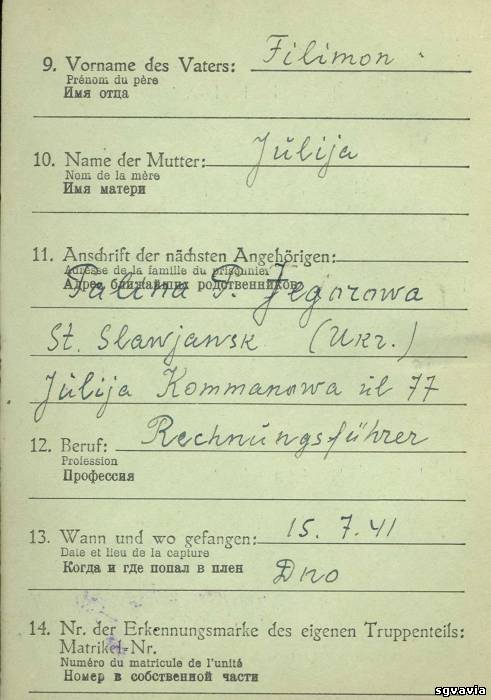 9. Vorname des Vaters: Filimon
Prénom du père
Имя отца
10. Name der Mutter: Jŭlija
Nom de la mère
Имя матери
11. Anschrift der nächsten Angehörigen:
Adresse de la famille du prisonnier
Адрес ближайших родственников
Palina P. Jegorowa
St. Slawjawsk (Ukr.)
Jŭlija Kommanowa ŭl 77
12. Beruf: Rechnŭngsführer
Profession
Профессия
13. Wann und wo gefangen: 15. 7. 41
Date et lieu de la capture
Когда и где попал в плен Dno
14. Nr. der Erkennungsmarke des eigenen Truppenteils:
Matrikel-Nr.
Numéro du matricule de l'unité
Номер в собственной части
sgvavia